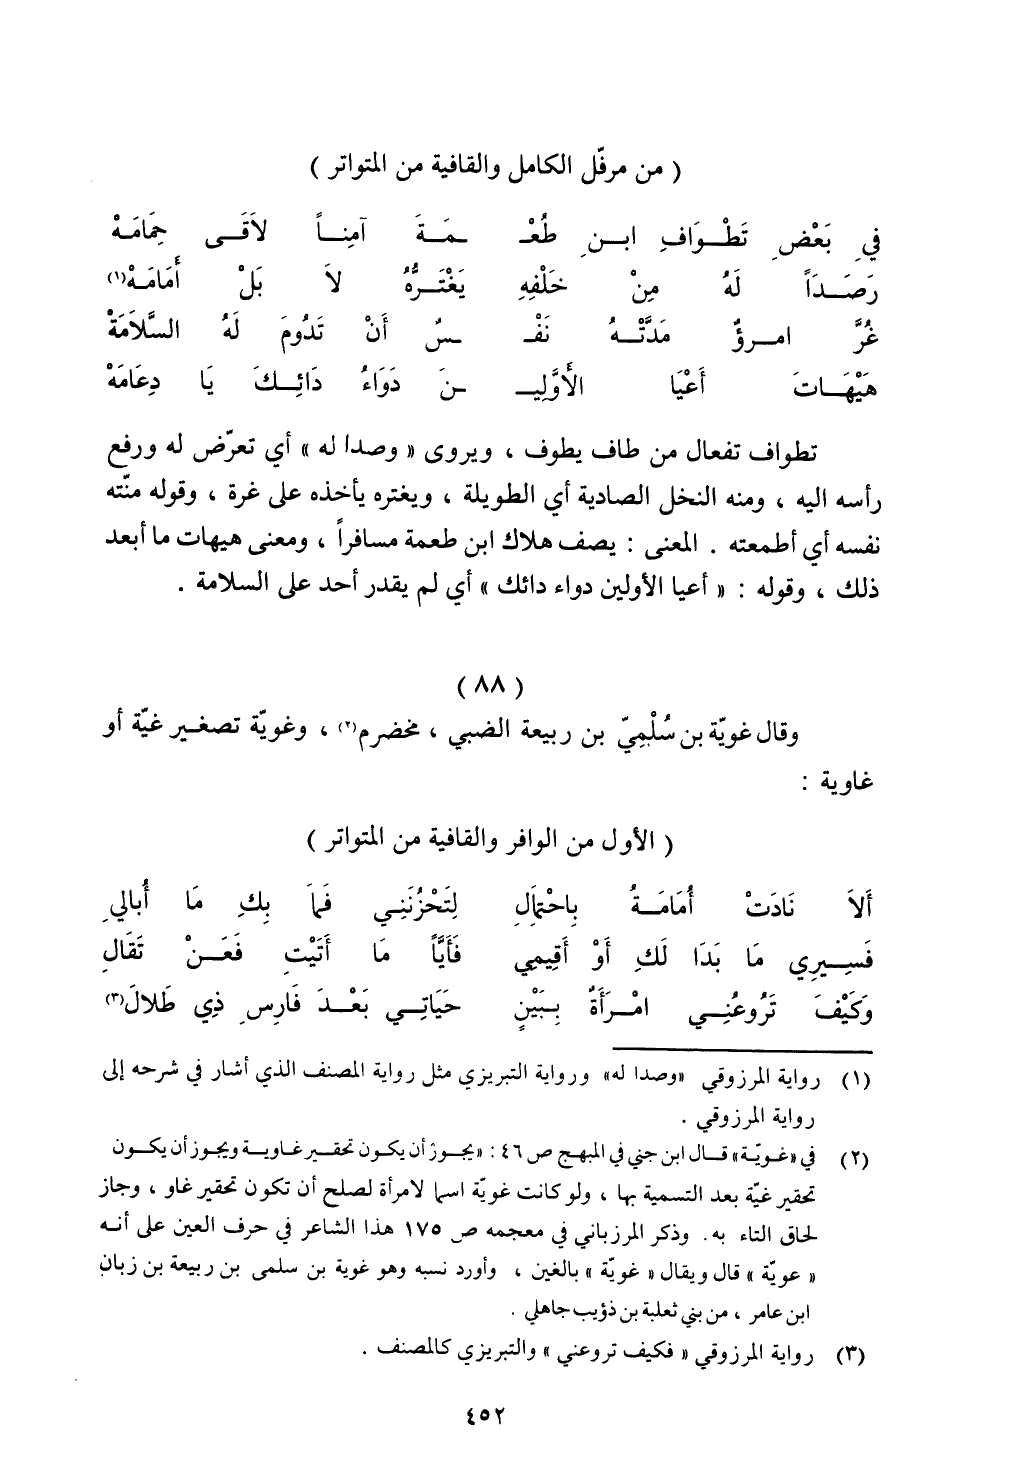 ( من مرفّل الكامل والقافية من المتواتر )
فِي بَعْضِ تَطْـوَافِ ابـنِ طُعْـ ـمَـةَ آمِنـاً لاَقَـى حِمَامَـهْ
رَصَـدَاً لَهُ مِنْ خَلْفِهِ يَغْتَـرُّهُ لاَ بَلْ أَمَامَـهْ(١)
غُرَّ امـرؤٌ مَدَّتْـهُ نَفْـ ـسٌ أَنْ تَدُومَ لَهُ السَّلاَمَةْ
هَيْهَـاتَ أَعْيَا الأَوَّلِيـ ـنَ دَوَاءُ دَائِـكَ يَا دِعَامَهْ
تطواف تفعال من طاف يطوف ، ويروى « وصدا له » أي تعرّض له ورفع
رأسه اليه ، ومنه النخل الصادية أي الطويلة ، ويغتره يأخذه على غرة ، وقوله منّته
نفسه أي أطمعته . المعنى : يصف هلاك ابن طعمة مسافراً ، ومعنى هيهات ما أبعد
ذلك ، وقوله : « أعيا الأولين دواء دائك » أي لم يقدر أحد على السلامة .
( ٨٨ )
وقال غويّة بن سُلْمِيّ بن ربيعة الضبي ، مخضرم(٢) ، وغويّة تصغير غيّة أو
غاوية :
( الأول من الوافر والقافية من المتواتر )
أَلاَ نَادَتْ أُمَامَـةُ بِاحْتِمَالِ لِتَحْزُنَنِـي فَمَا بِكِ مَا أُبَالِي
فَسِـيرِي مَا بَدَا لَكِ أَوْ أَقِيمِي فَأَيَّاً مَا أَتَيْتِ فَعَـنْ تَقَالِ
وَكَيْفَ تَرُوعُنِـي امْـرَأَةٌ بِبَيْنٍ حَيَاتِـي بَعْـدَ فَارِسِ ذِي طَلالَ(٣)
(١) رواية المرزوقي «وصدا له» ورواية التبريزي مثل رواية المصنف الذي أشار في شرحه إلى
رواية المرزوقي .
(٢) في «غـويّـة» قـال ابن جني في المبهج ص ٤٦ : «يجـوز أن يكـون تحقـير غـاويـة ويجـوز أن يكـون
تحقير غيّة بعد التسمية بها ، ولو كانت غويّة اسما لامرأة لصلح أن تكون تحقير غاو ، وجاز
لحاق التاء به. وذكر المرزباني في معجمه ص ١٧٥ هذا الشاعر في حرف العين على أنـه
« عويّة » قال ويقال « غويّة » بالغين ، وأورد نسبه وهو غوية بن سلمى بن ربيعة بن زبان
ابن عامر ، من بني ثعلبة بن ذؤيب جاهلي .
(٣) رواية المرزوقي « فكيف تروعني » والتبريزي كالمصنف .
٤٥٢